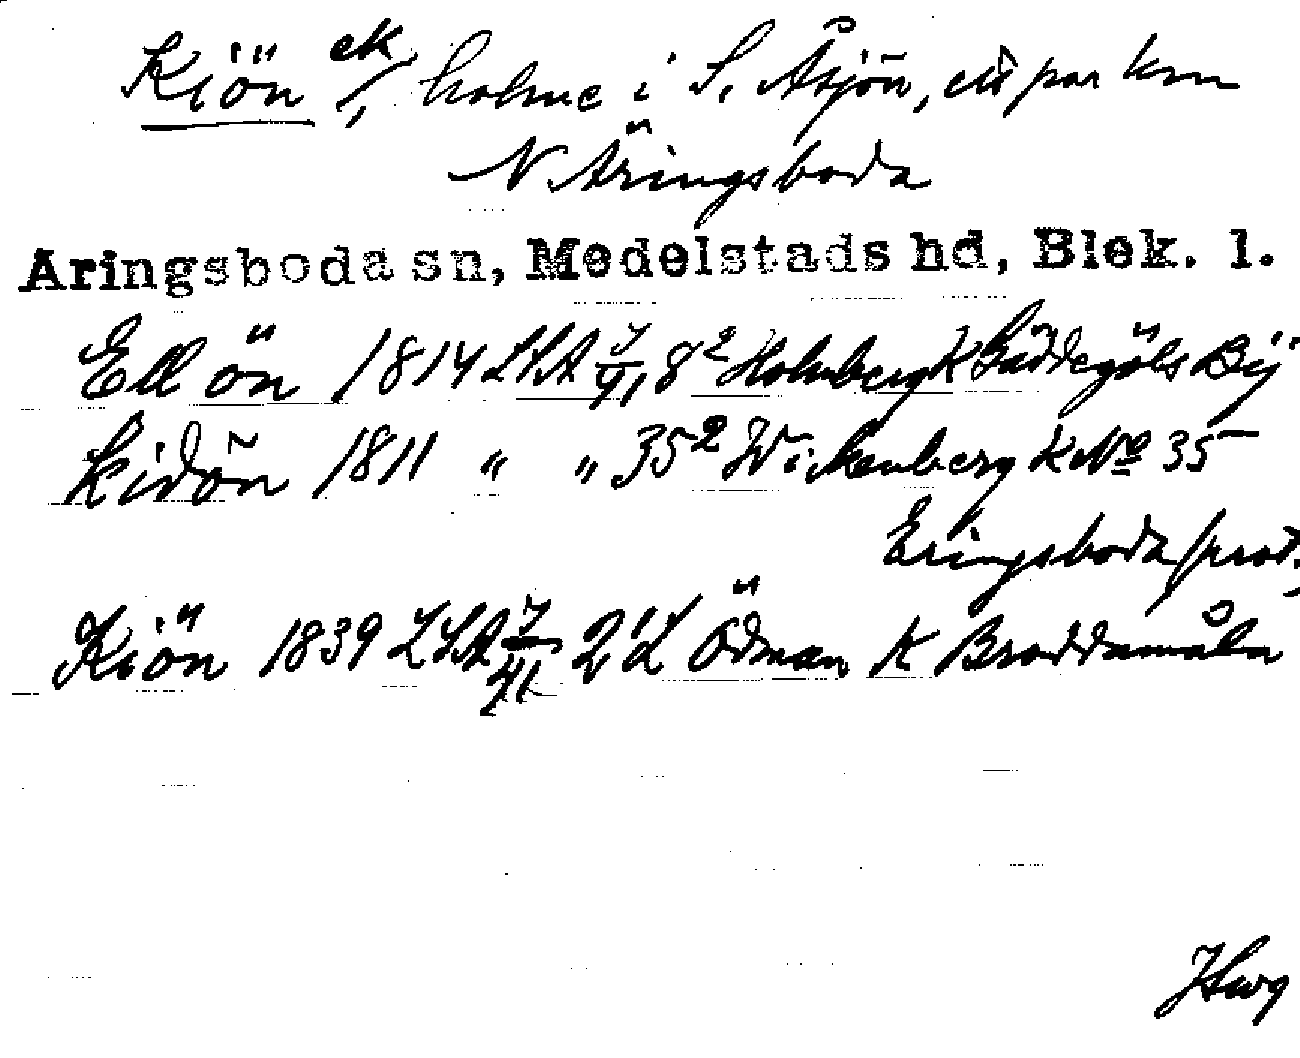 Kiön ek /, holme i S. Åsjön, ett par km
N Äringsboda
Aringsboda sn, Medelstads hd, Blek. l.
Ell ön 1814 LSA 7/41 8² Holmberg K Gäddegöls Bÿ
Kidön 1811 " " 35² Wickenberg K No 35
Eringsboda prod.
Kiön 1839 LSA 7/41 2 L Ödman K Broddamåla